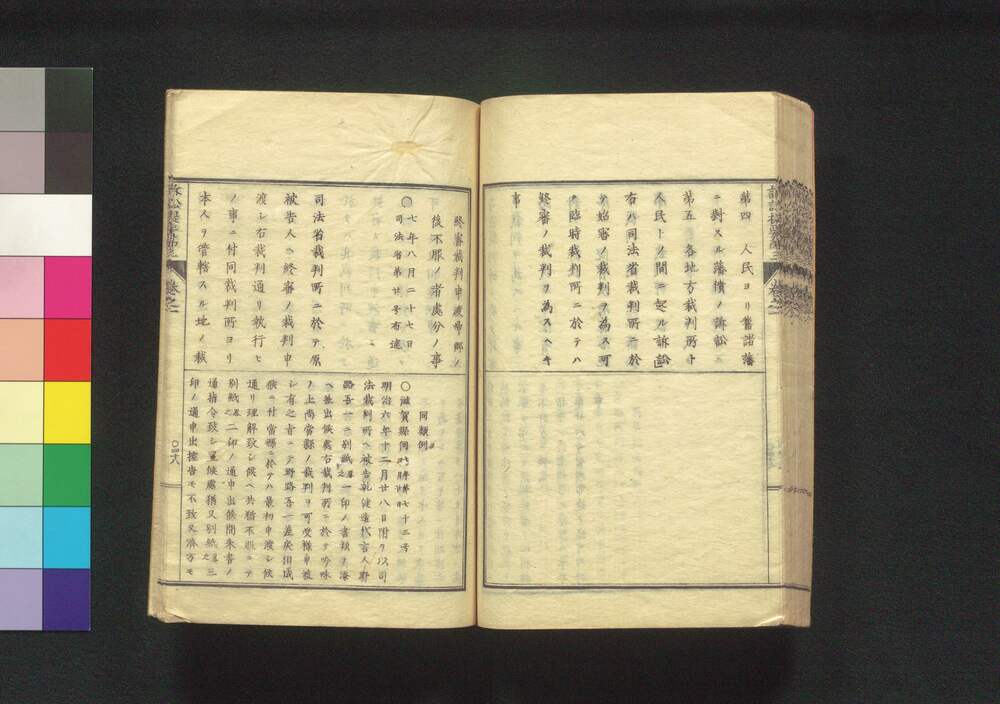 第四 人民ヨリ舊諸藩
ニ對スル藩債ノ訴訟
第五 各地方裁判所ト
人民トノ間ニ起ル訴訟
右ハ司法省裁判所ニ於
テ始審ノ裁判ヲ為ス可
ク臨時裁判所ニ於テハ
終審ノ裁判ヲ為スヘキ
事
終審裁判申渡帰郷ノ
後不服ノ者處分ノ事
○七年八月二十七日
司法省第廿号布達
司法省裁判所ニ於テ原
被告人ヘ終審ノ裁判申
渡シ右裁判通リ執行セ
ノ事ニ付同裁判所ヨリ
本人ヲ管轄スル地ノ裁
同類例
○滋賀縣伺
明治六年十二月廿八日附ヲ以司
法裁判所ヘ被告乾健造代言人野
路吾一ニ別紙
一印ノ書類ヲ添
ヘ差出候處右裁判所ニ於テ吟味
ノ上尚當縣ノ裁判ヲ可受様申渡
シ有之者ニテ野路吾一差戻相成
候ニ付當縣ニ於テハ最初申渡シ候
通リ理解致シ候ヘ共猶不服ニテ
別紙
二印ノ通申出候間朱書ノ
通指令致シ置候處猶又別紙
三
印ノ通申出控告モ不致又済方モ
訴訟提要
卷之一
○四十八